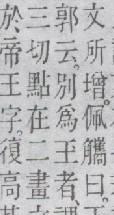 文所增。佩觿曰。
郭云。別爲王者
三切點在二畫
於帝王字。復高